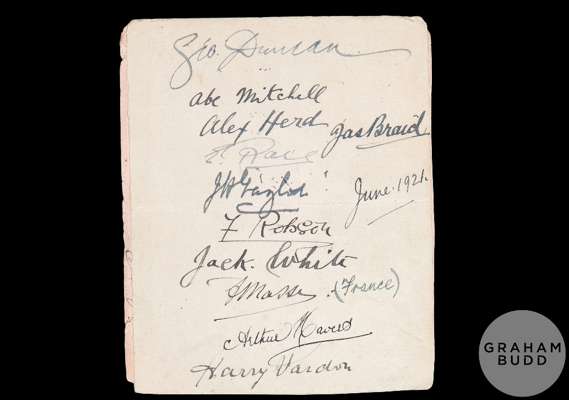 Geo. Duncan
Abe Mitchell
Alex Herd
Jas Braid
E. Race
JH Taylor
June. 1921.
F Robson
Jack. White
Massy. (France)
Arthur Havers
Harry Vardon
GRAHAM
BUDD